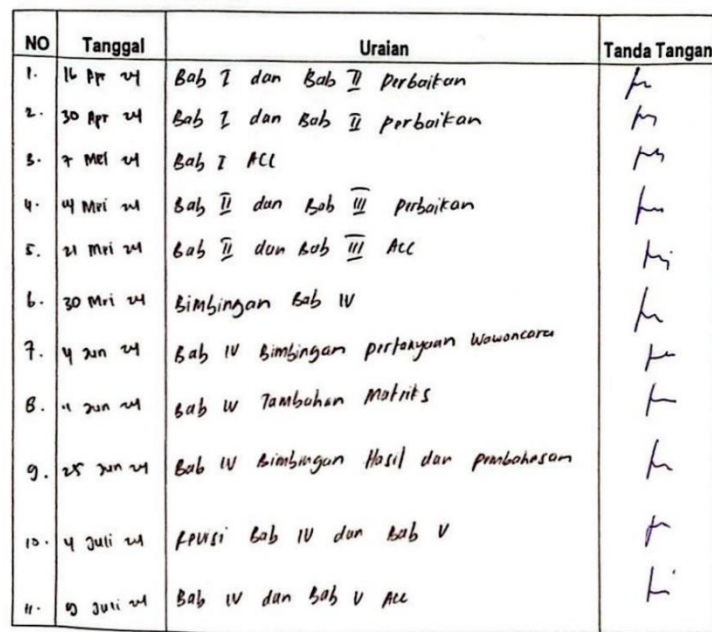 NO Tanggal Uraian Tanda Tangan
1. 16 Apr 24 Bab I dan Bab II Perbaikan
2. 30 Apr 24 Bab I dan Bab II perbaikan
3. 7 Mei 24 Bab I ACC
4. 14 Mei 24 Bab II dan Bab III perbaikan
5. 21 Mei 24 Bab II dan Bab III ACC
6. 30 Mei 24 Bimbingan Bab IV
7. 4 Jun 24 Bab IV Bimbingan pertanyaan Wawancara
8. 11 Jun 24 Bab IV Tambahan Matriks
9. 25 Jun 24 Bab IV Bimbingan Hasil dan pembahasan
10. 4 Juli 24 Revisi Bab IV dan Bab V
11. 9 Juli 24 Bab IV dan Bab V ACC